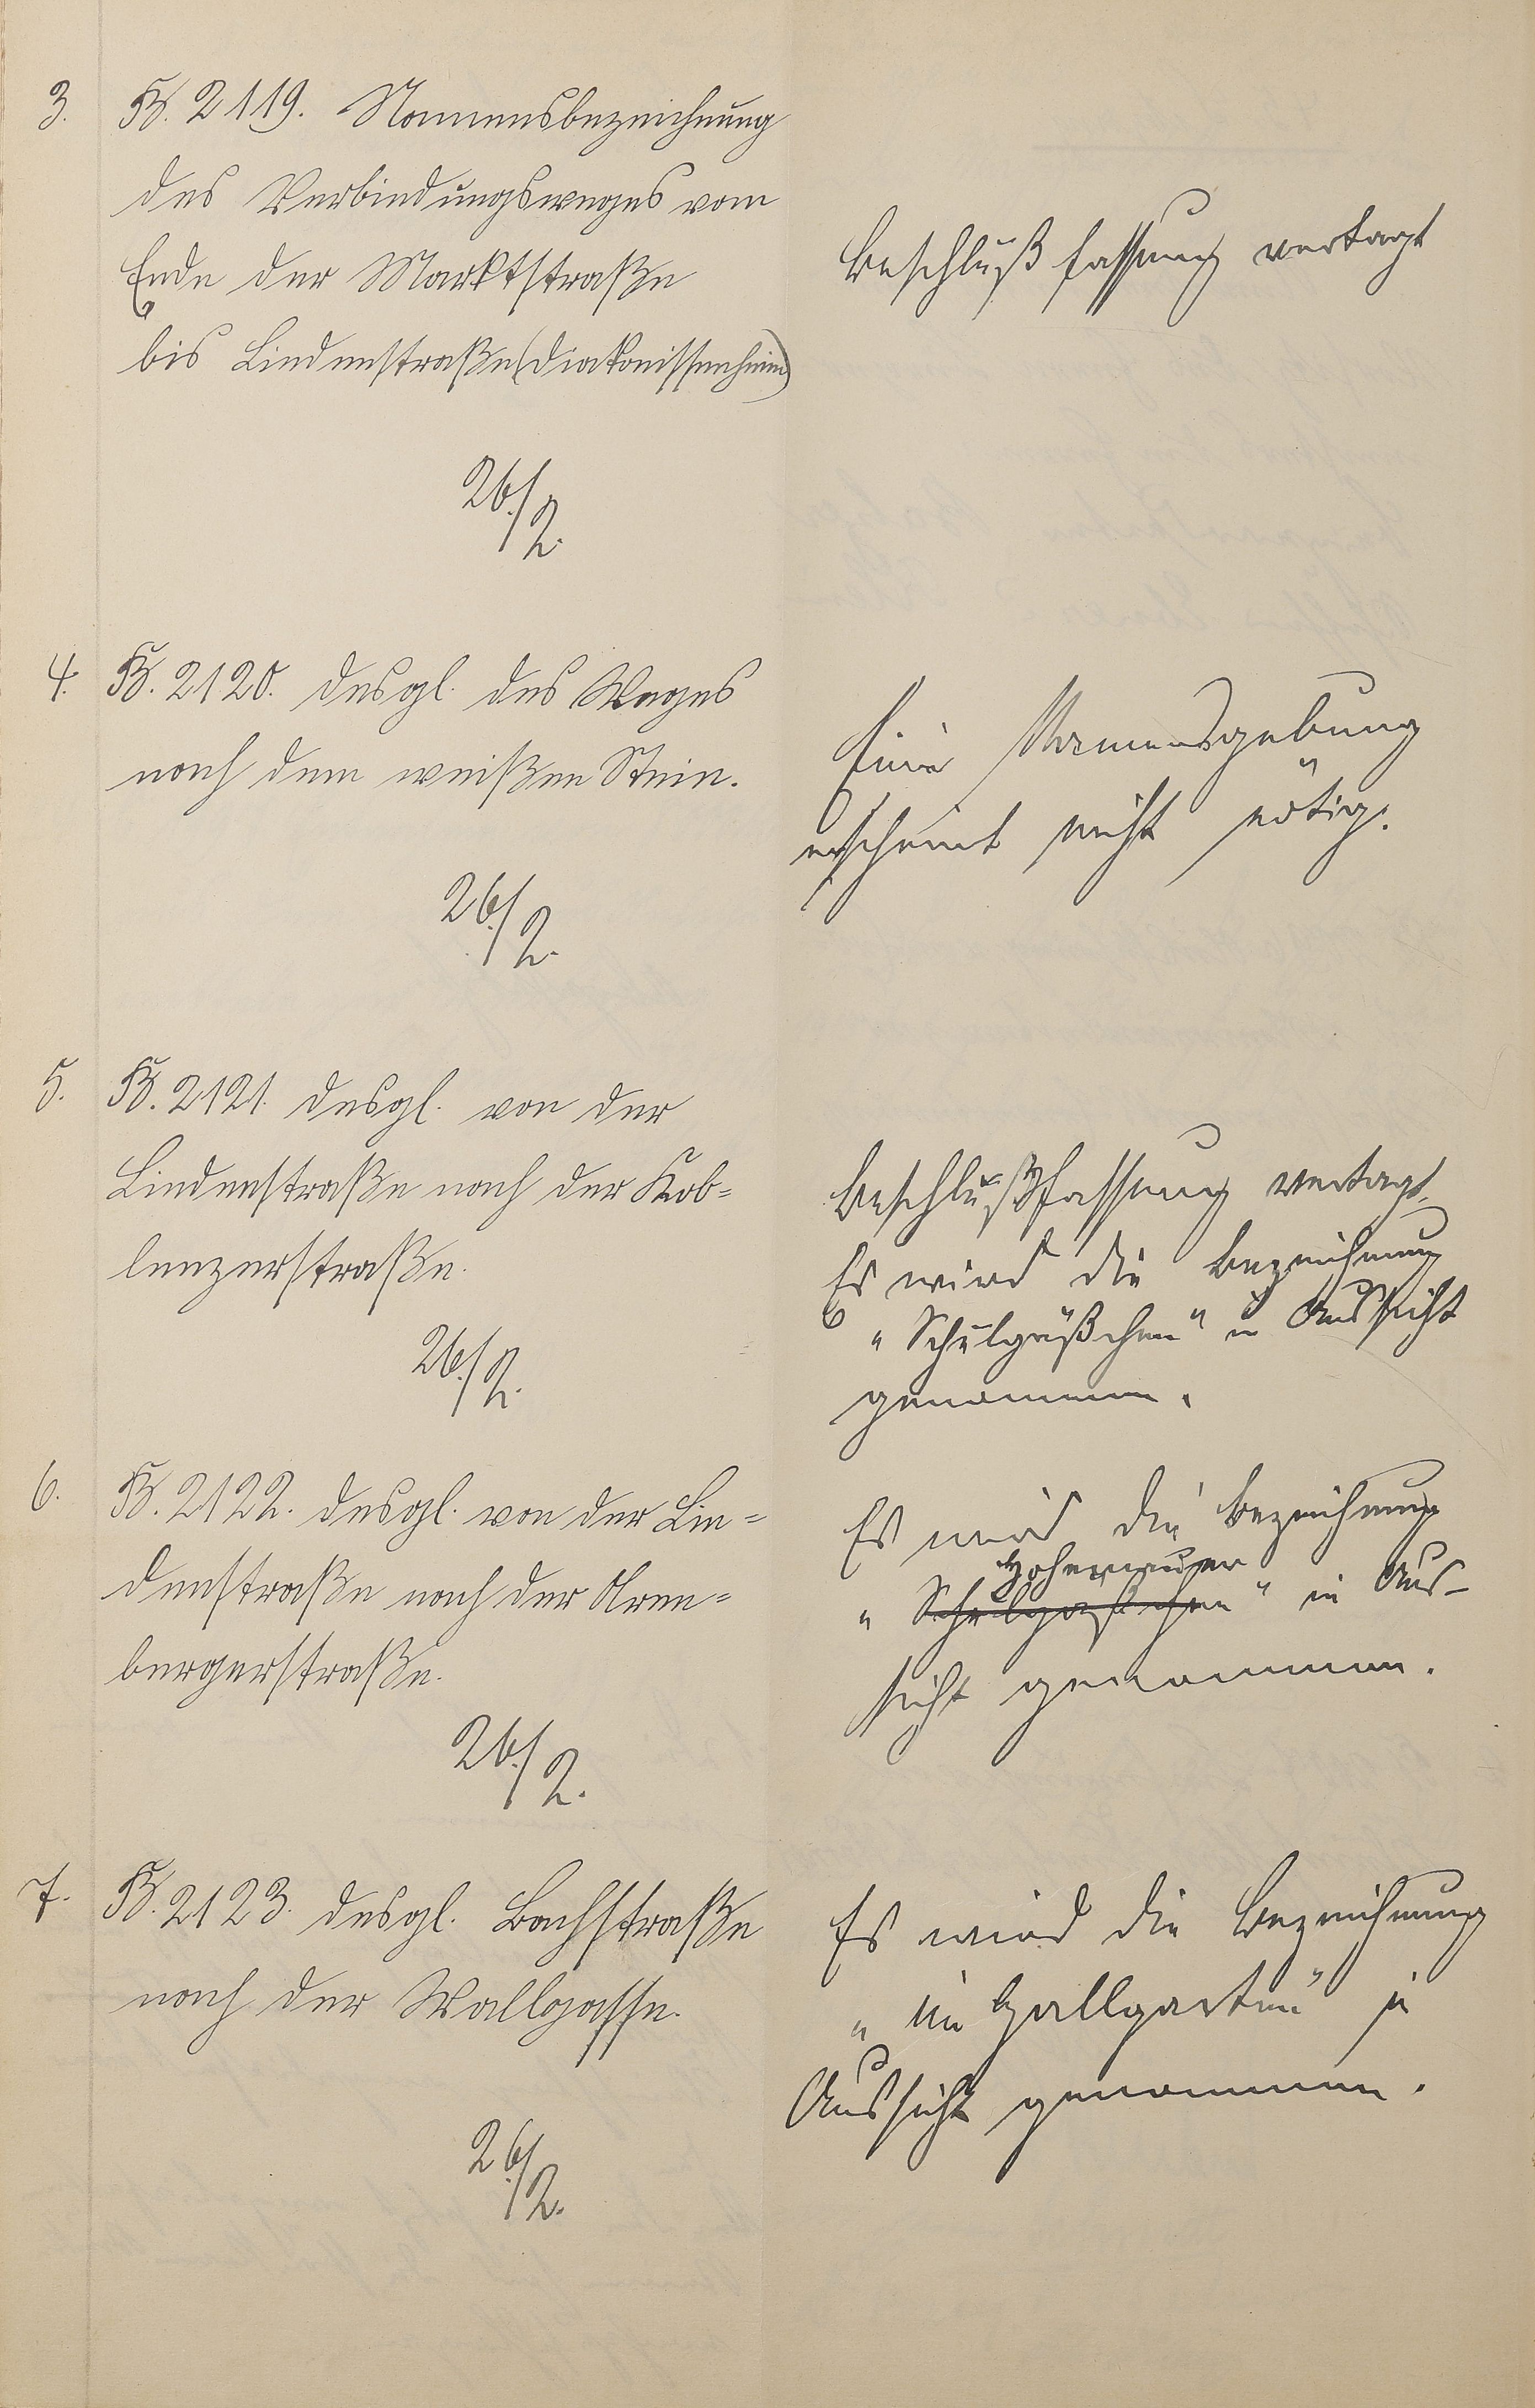 3. B. 2119. Namensbezeichnung
des Verbindungsweges vom
Ende der Marktstraße
bis Lindenstraße (Diakonissenheim)
26./2.
Beschlußfassung vertagt
4. B. 2120. desgl. des Weges
nach dem weißen Stein.
26./2.
Eine Namensgebung
erscheint nicht nötig.
5. B. 2121. desgl. von der
Lindenstraße nach der Kob=
lenzerstraße.
26./2.
Beschlußfassung vertagt.
Es wird die Bezeichnung
„Schulgäßchen“ in Aussicht
genommen.
6. B. 2122. desgl. von der Lin=
denstraße nach der Aren=
bergerstraße.
26./2.
Es wird die Bezeichnung
Hohemauer
„Schulgaßchen“ in Aus-
sicht genommen.
7. B. 2123. desgl. Bachstraße
nach der Wallgasse.
26./2.
Es wird die Bezeichnung
„im Hallgarten“ in
Aussicht genommen.